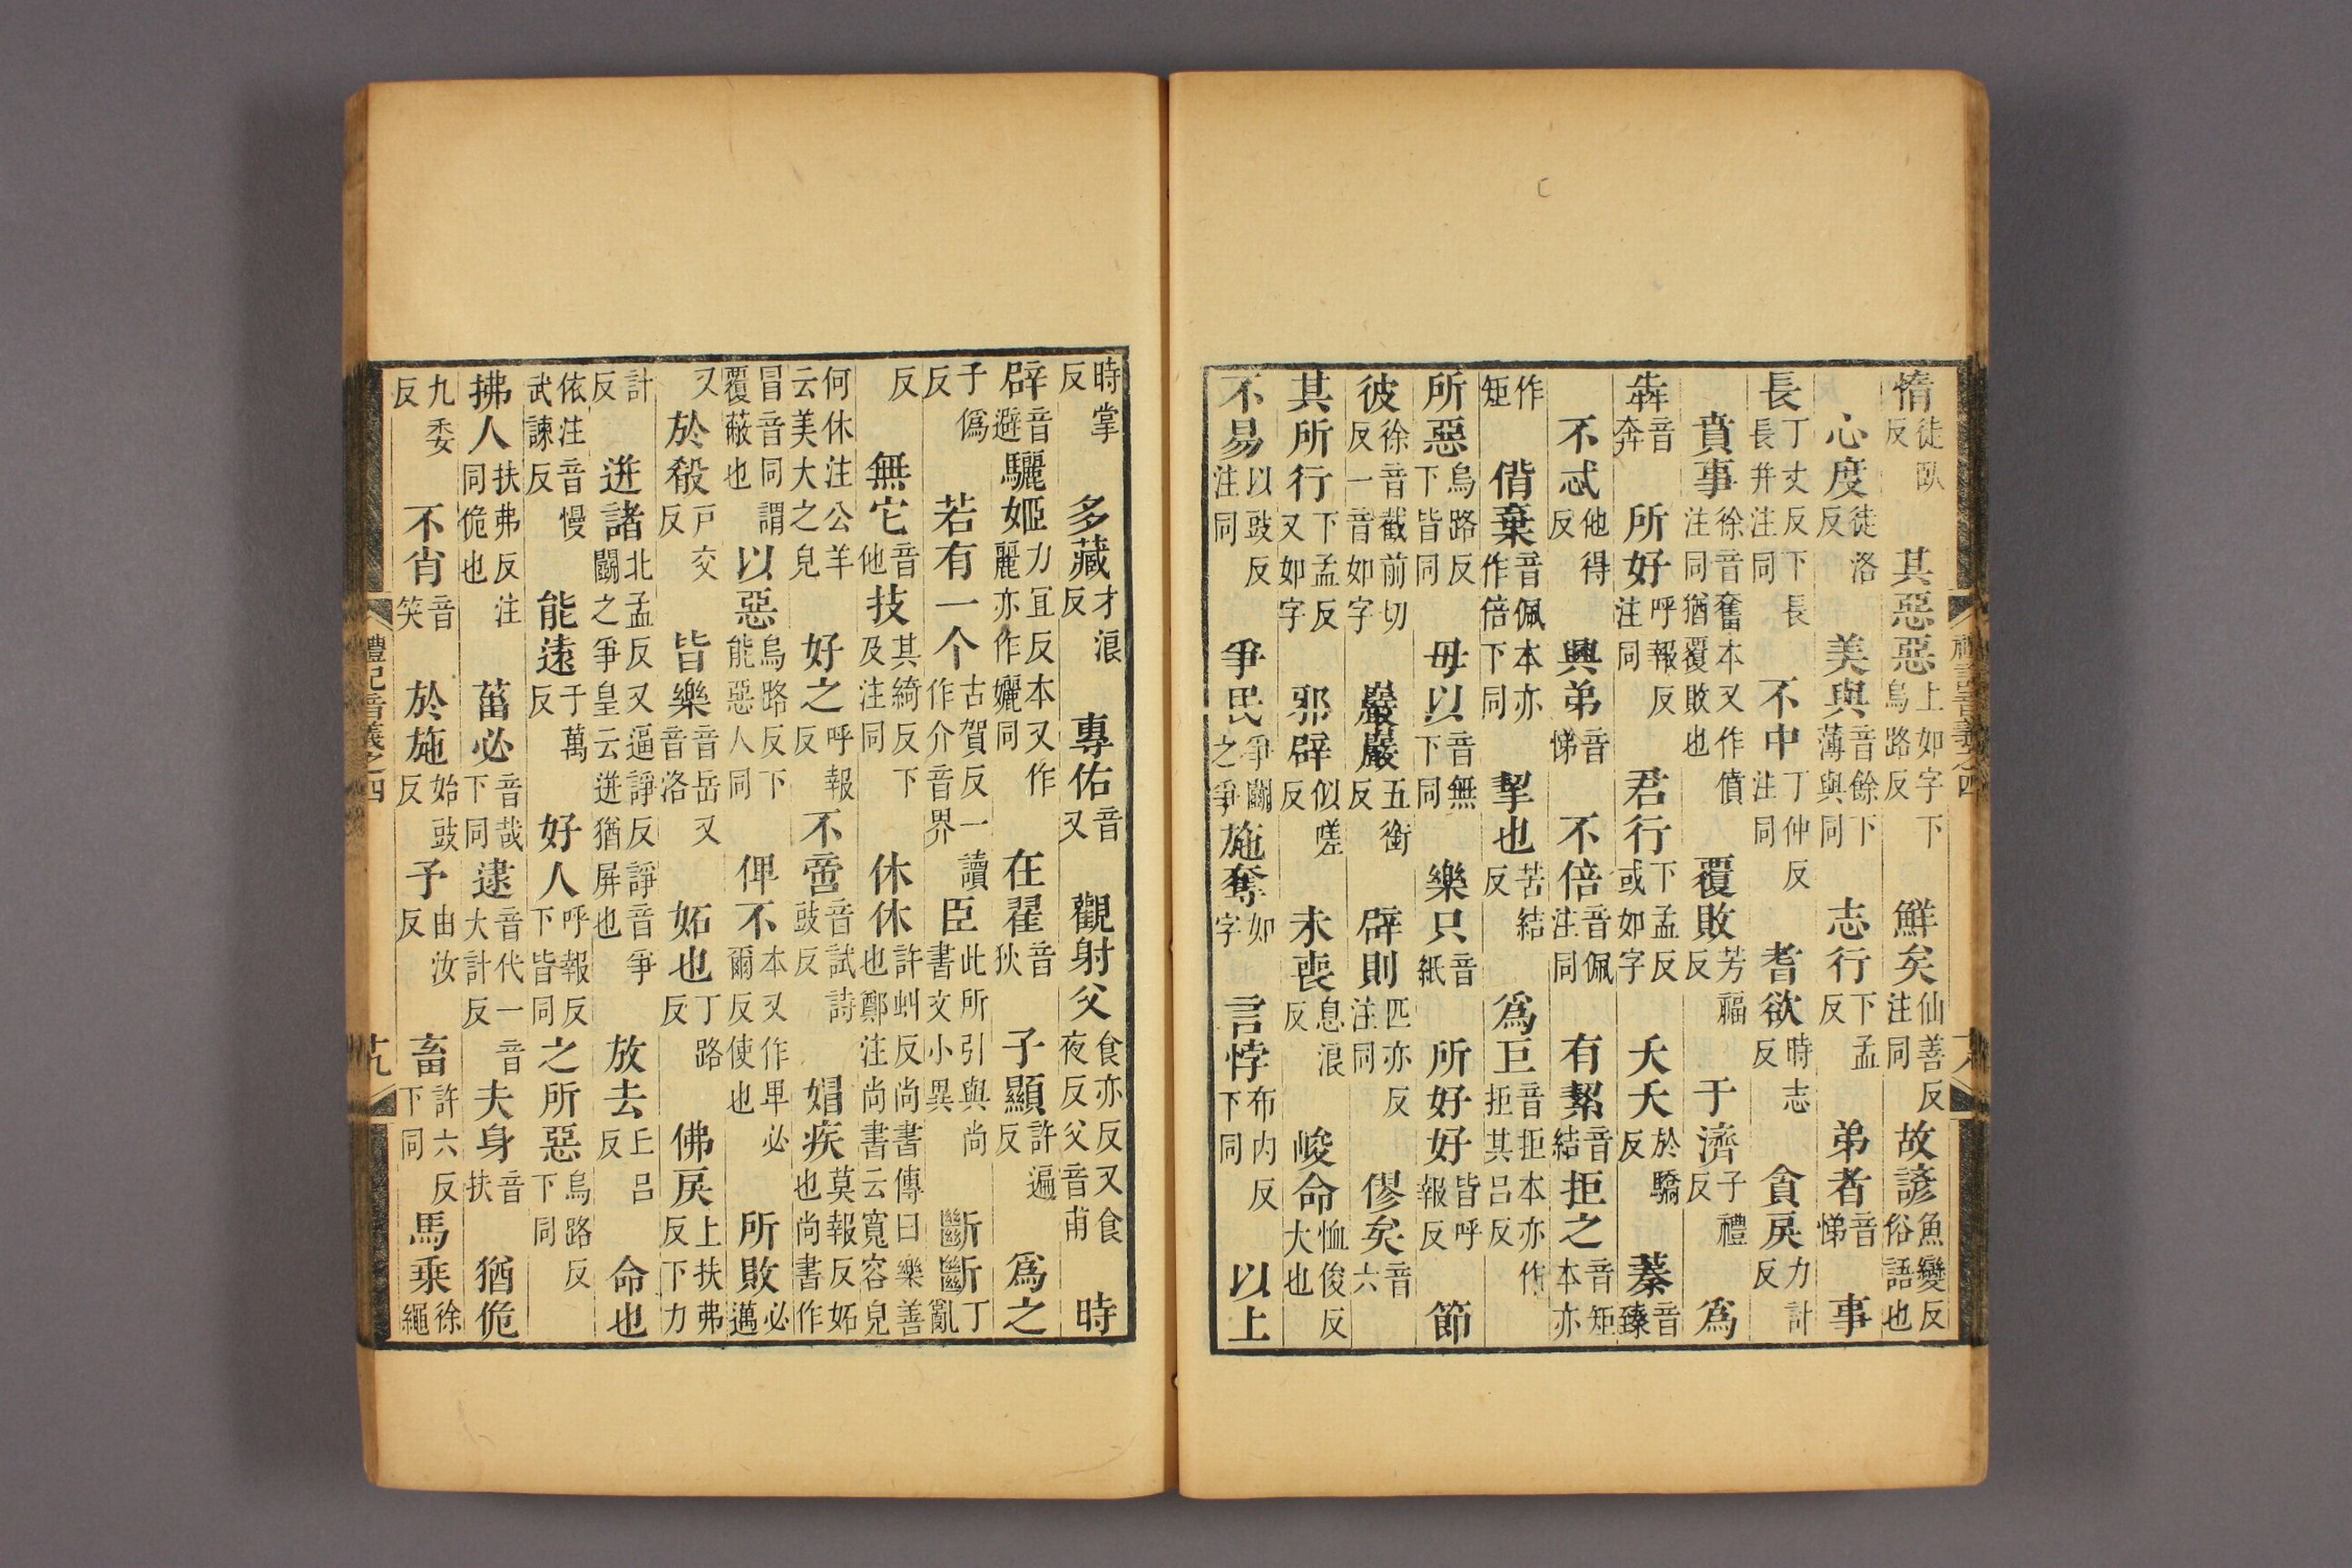 惰徒臥反　其惡惡上如字下烏路反　鮮矣仙善反注同　故諺魚變反俗語也
心度徒洛反　美與音餘下薄與同　志行下孟反　弟者音悌　事
長丁丈反下長長并注同　不中丁仲反注同　耆欲時志反　貪戾力計反
賁事徐音奮本又作僨注同猶覆敗也　覆敗芳福反　于濟子禮反　爲
犇音奔　所好呼報反注同　君行下孟反或如字　夭夭於驕反　蓁音臻
不忒他得反　興弟音悌　不倍音佩注同　有絜音結　拒之音矩本亦
作矩　偝棄音佩本亦作倍下同　挈也苦結反　爲巨音拒本亦作拒其呂反
所惡烏路反下皆同　毋以音無下同　樂只音紙　所好好皆呼報反　節
彼徐音截前切反一音如字　巖巖五銜反　辟則匹亦反注同　僇矣音六
其所行下孟反又如字　邪辟似嗟反　未喪息浪反　峻命恤俊反大也
不易以豉反注同　爭民爭鬭之爭　施奪如字　言悖布內反下同　以上
時掌反　多藏才浪反　專佑音又　觀射父食亦反又食夜反父音甫　時
辟音避　驪姬力宜反本又作麗亦作孋同　在翟音狄　子顯許遍反　爲之
于僞反　若有一个古賀反一讀作介音界　臣此所引與尚書文小異　斷斷丁亂
反　無它音他　技其綺反下及注同　休休許虯反尚書傳曰樂善也鄭注尚書云寬容皃
何休注公羊云美大之皃　好之呼報反　不啻音試詩豉反　媢疾莫報反妬也尚書作
冒音同謂覆蔽也　以惡烏路反下能惡人同　俾不本又作卑必爾反使也　所敗必邁
又　於殽戶交反　皆樂音岳又音洛　妬也丁路反　佛戾上扶弗反下力
計反　迸諸北孟反又逼諍反諍音爭鬭之爭皇云迸猶屏也　放去丘呂反　命也
依注音慢武諫反　能遠于萬反　好人呼報反下皆同　之所惡烏路反下同
拂人扶弗反注同佹也　菑必音哉下同　逮音代一音大計反　夫身音扶　猶佹
九委反　不肖音笑　於施始豉反　予由汝反　畜許六反下同　馬乘徐繩
禮記音義之四